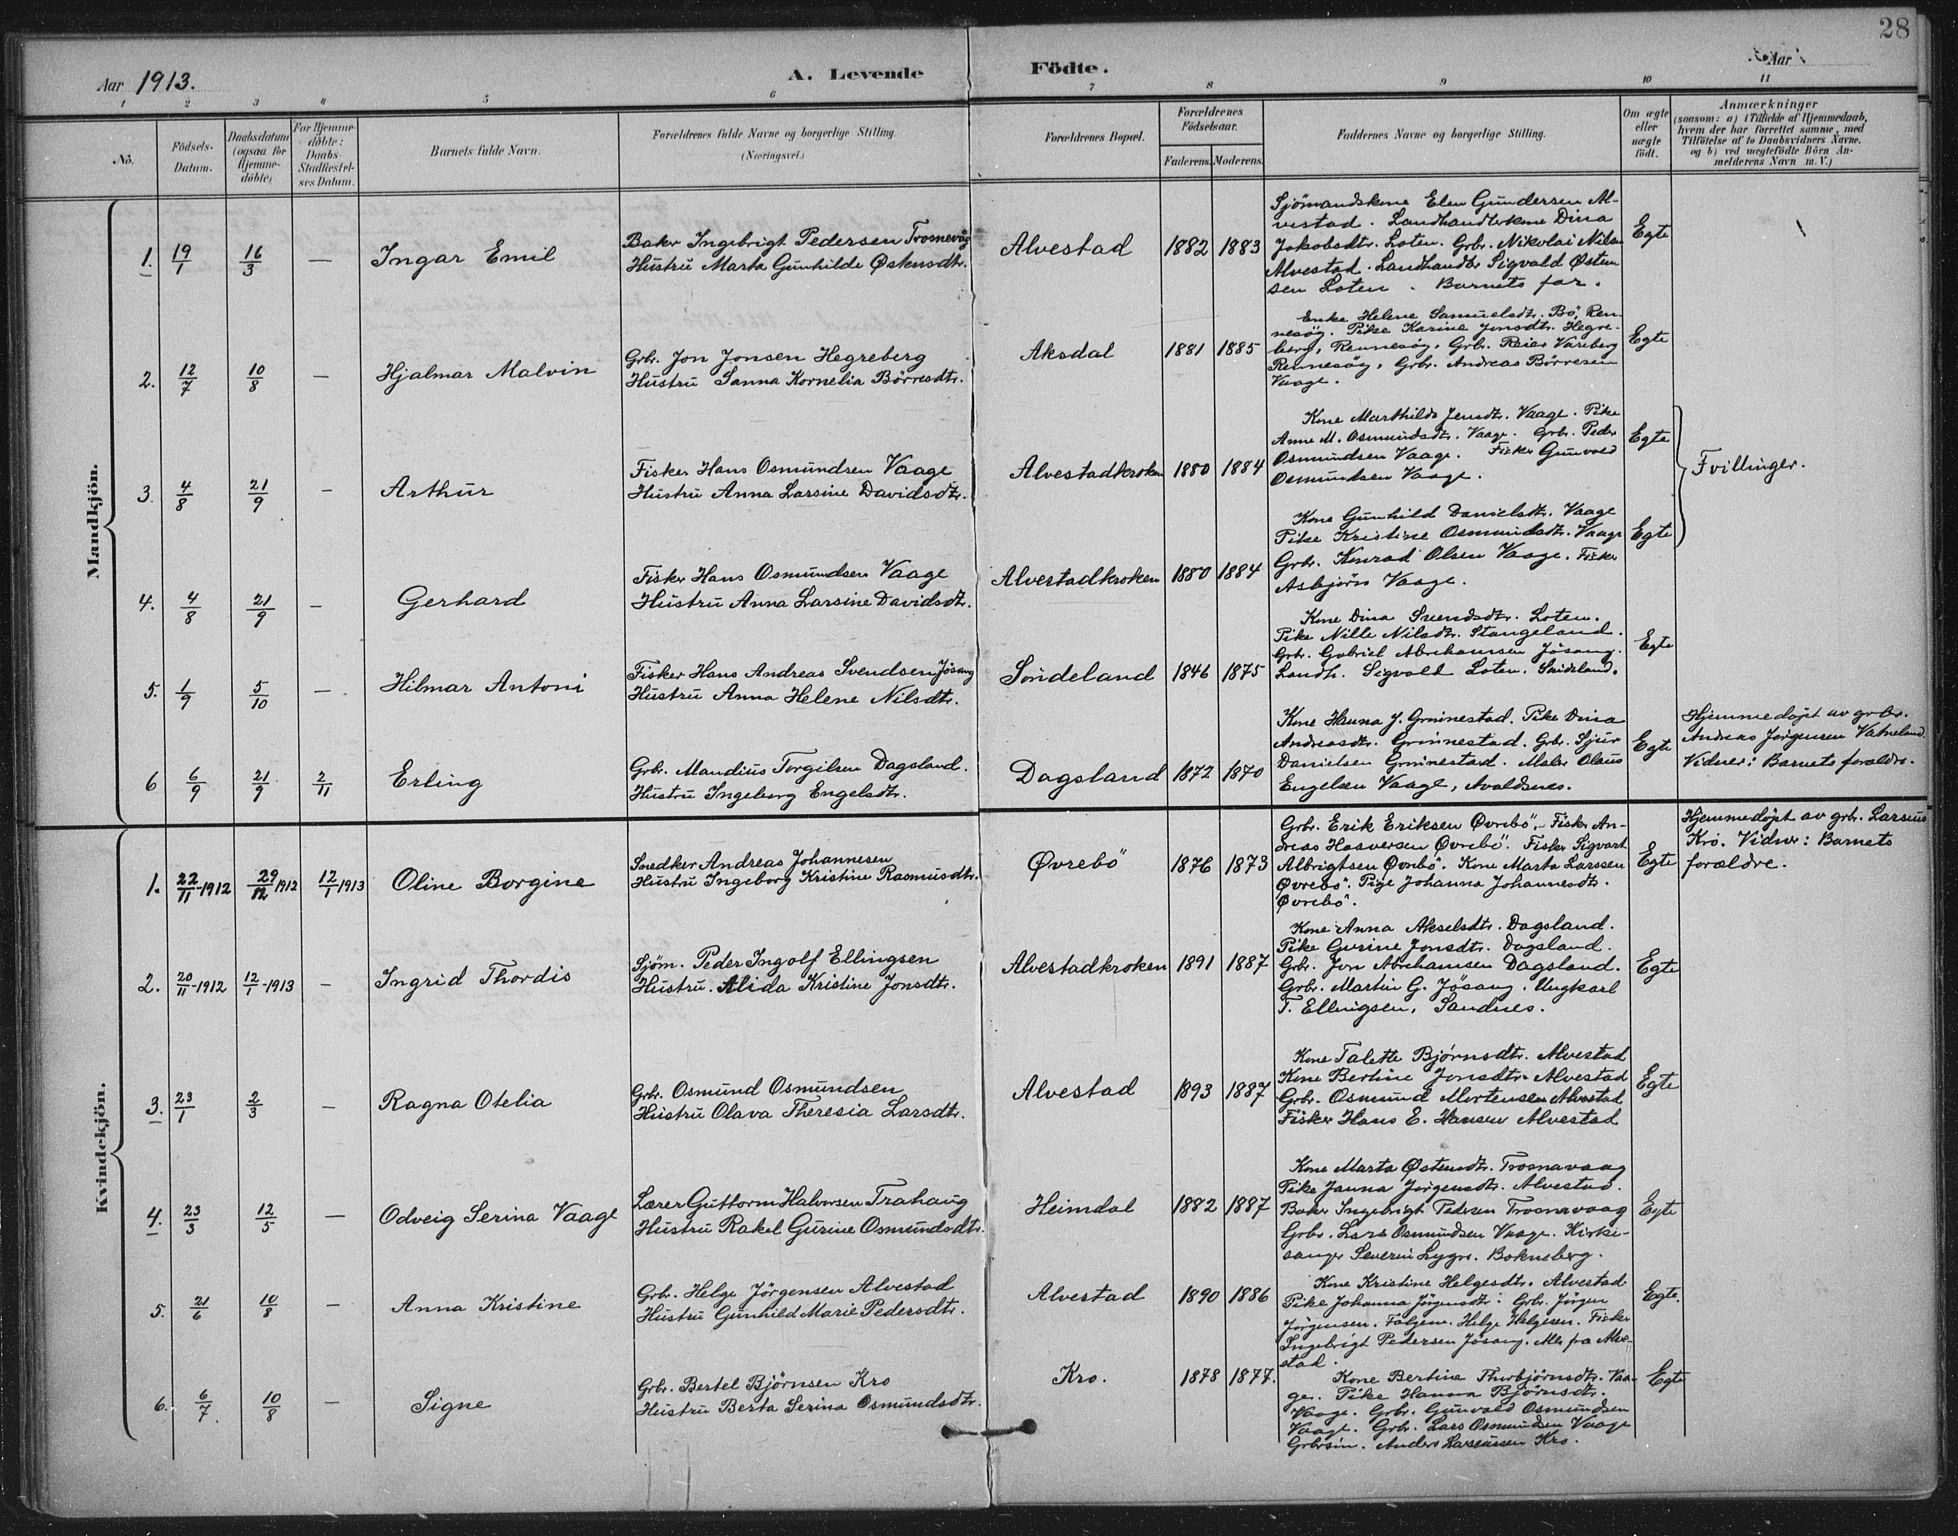 28
Aar 1913.
A. Levende Födte.
Aar
1 2 3 4 5 6 7 8 9 10 11
No.
Födsels-Datum.
Daabsdatum (ogsaa for Hjemme-döbte)
For Hjemme-döbte: Daabs-Stadfæstel-ses Datum.
Barnets fulde Navn.
Forældrenes fulde Navne og borgerlige Stilling.
(Næringsvei.)
Forældrenes Bopæl.
Forældrenes Födselsaar.
Faderens. Moderens.
Faddernes Navne og borgerlige Stilling.
Om ægte eller uægte födt.
Anmærkninger
(saasom: a) i Tilfælde af Hjemmedaab,
hvem der har forrettet samme, med
Tilföielse af to Daabsvidners Navne.
og b) ved uægtefödte Börn An-
melderens Navn m. V.)
Mandkjön.
1. 19/1 16/3 — Ingar Emil
Baker Ingebrigt Pedersen Trosnevåg
Hustru Marta Gunhilde Østensdtr.
Alvestad 1882 1883
Sjömandskone Elen Gundersen Al-
vestad. Landhandlerkone Dina
Jakobsdtr. Loten. Grbr. Nikolai Nilsen
Alvestad. Landhandler Sigvald Østen-
sen Loten. Barnets far.
Egte
2. 12/7 10/8 — Hjalmar Malvin
Grbr. Jon Jonsen Hegreberg
Hustru Sanna Kornelia Börresdtr.
Aksdal 1881 1885
Enke Helene Samuelsdtr. Bö, Ren-
nesöy. Pike Karine Jonsdtr. Hegre-
berg, Rennesöy. Grbr. Reier Vareberg
Rennesöy, Grbr. Andreas Börresen
Vaage.
Egte
3. 4/8 21/9 — Arthur
Fisker Hans Osmundsen Vaage
Hustru Anna Larsine Davidsdtr.
Alvestadkroken 1880 1884
Kone Marthilde Jensdtr. Vaage. Pike
Anne M. Osmundsdtr. Vaage. Grbr. Peder
Osmundsen Vaage. Fisker Gunvald
Osmundsen Vaage.
Egte
Tvillinger.
4. 4/8 21/9 — Gerhard
Fisker Hans Osmundsen Vaage
Hustru Anna Larsine Davidsdtr.
Alvestadkroken 1880 1884
Kone Gunhild Danielsdtr. Vaage
Pike Kristine Osmundsdtr. Vaage
Grbr. Konrad Olsen Vaage. Fisker
Asbjørn Vaage.
Egte
5. 1/9 5/10 — Hilmar Antoni
Fisker Hans Andreas Svendsen Jösang
Hustru Anna Helene Nilsdtr.
Söndeland 1846 1875
Kone Dina Svendsdtr. Loten.
Pike Nille Nilsdtr. Stangeland.
Grbr. Gabriel Abrahamsen Jösang.
Landh. Sigvald Loten.
Egte
6 6/9 21/9 2/11 Erling
Grbr. Mandius Torgilsen Dagsland.
Hustru Ingeborg Engelsdtr.
Dagsland 1872 1870
Kone Hanna J. Grinnestad. Pike Dina
Andreasdtr. Grinnestad. Grbr. Sjur
Danielsen Grinnestad. Maler Olaus
Engelsen Vaage, Avaldsnes.
Egte
Hjemmedøpt av grbr.
Andreas Jørgensen Vatneland.
Vidner: Barnets forældre.
Kvindekjön.
1. 22/11-1912 29/12 1912 12/1 1913 Oline Borgine
Snedker Andreas Johannesen
Hustru Ingeborg Kristine Rasmusdtr.
Øvrebö 1876 1873
Grbr. Erik Eriksen Øvrebö. Fisker An-
dreas Hosversen Øvrebö. Fisker Sigvart
Albrigtsen Øvrebö. Kone Marta Larssen
Øvrebö. Pige Johanna Johannesdtr.
Øvrebö.
Egte
Hjemmedøpt av grbr. Larsius
Krö. Vidner: Barnets
forældre.
2. 20/11-1912 12/1-1913 — Ingrid Thordis
Sjöm. Peder Ingolf Ellingsen
Hustru Alida Kristine Jonsdtr.
Alvestadkroken 1891 1887
Kone Anna Akselsdtr. Dagsland.
Pike Gurine Jonsdtr. Dagsland.
Grbr. Jon Abrahamsen Dagsland.
Grbr. Martin G. Jösang. Ungkarl
T. Ellingsen, Sandnes.
Egte
3. 23/1 2/3 — Ragna Otelia
Grbr. Osmund Osmundsen
Hustru Olava Theresia Larsdtr.
Alvestad 1893 1887
Kone Talette Bjørnsdtr. Alvestad
Kone Bertine Jonsdtr. Alvestad
Grbr. Osmund Mortensen Alvestad
Fisker Hans E. Hansen Alvestad
Egte
4. 23/3 12/5 — Odveig Serina Vaage
Lærer Guttorm Halvorsen Trahaug
Hustru Rakel Gurine Osmundsdtr.
Heimdal 1882 1887
Kone Marta Østensdtr. Trosnavaag
Pike Janna Jørgensdtr. Alvestad.
Baker Ingebrigt Pedersen Trosnavaag
Grbr. Lars Osmundsen Vaage. Kirke-
sanger Severin Lygre. Bokneberg.
Egte
5. 21/6 10/8 — Anna Kristine
Grbr. Helge Jörgensen Alvestad
Hustru Gunhild Marie Pedersdtr.
Alvestad 1890 1886
Kone Kristine Helgesdtr. Alvestad
Pike Johanna Jörgensdtr. Grbr. Jörgen
Jörgensen. Helge Helgesen. Fisker
Ingebrigt Pedersen Jösang. Alle fra Alve-
stad.
Egte.
6. 6/7 10/8 — Signe
Grbr. Bertel Björnsen Kro
Hustru Berta Serina Osmundsdtr.
Kro. 1878 1877.
Kone Bertine Thorbjörnsdtr. Vaa-
ge. Pike Hanna Björnsdtr.
Vaage. Grbr. Gunvald Osmundsen
Vaage. Grbr. Lars Osmundsen Vaage
Grbrsön. Anders Larsiussen Kro.
Egte